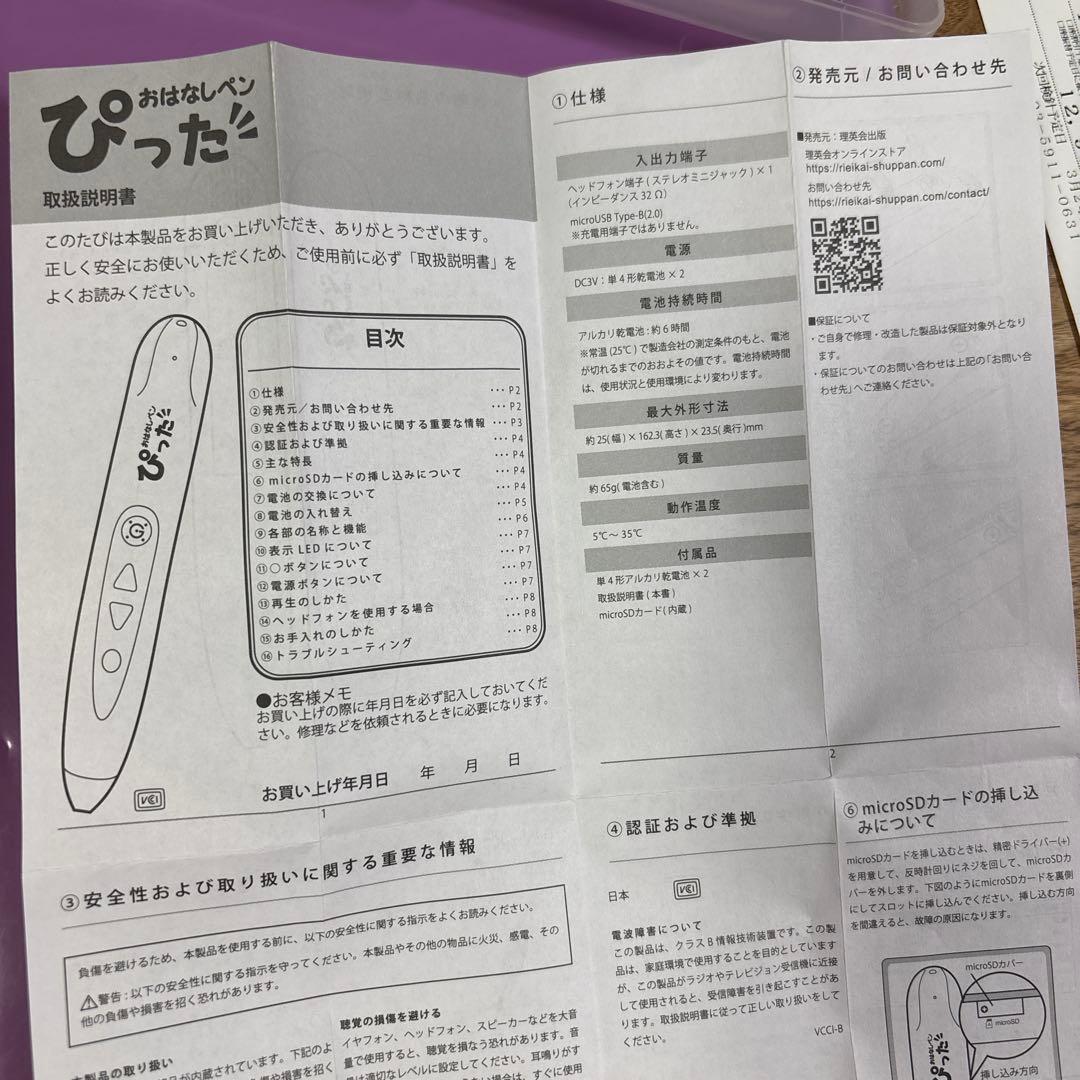 おはなしペン
ぴった
取扱説明書
このたびは本製品をお買い上げいただき、ありがとうございます。
正しく安全にお使いいただくため、ご使用前に必ず「取扱説明書」を
よくお読みください。
おはなしペン
ぴった
目次
①仕様 ・・・P2
②発売元／お問い合わせ先 ・・・P2
③安全性および取り扱いに関する重要な情報 ・・・P3
④認証および準拠 ・・・P4
⑤主な特長 ・・・P4
⑥microSDカードの挿し込みについて ・・・P4
⑦電池の交換について ・・・P4
⑧電池の入れ替え ・・・P5
⑨各部の名称と機能 ・・・P6
⑩表示LEDについて ・・・P7
⑪○ボタンについて ・・・P7
⑫電源ボタンについて ・・・P7
⑬再生のしかた ・・・P7
⑭ヘッドフォンを使用する場合 ・・・P8
⑮お手入れのしかた ・・・P8
⑯トラブルシューティング ・・・P8
●お客様メモ
お買い上げの際に年月日を必ず記入しておいてくだ
さい。修理などを依頼されるときに必要になります。
お買い上げ年月日　年　月　日
VCI
1
①仕様
入出力端子
ヘッドフォン端子(ステレオミニジャック)×1
(インピーダンス32Ω)
microUSB Type-B(2.0)
※充電用端子ではありません。
電源
DC3V：単4形乾電池×2
電池持続時間
アルカリ乾電池：約6時間
※常温(25℃)で製造会社の測定条件のもと、電池
が切れるまでのおおよその値です。電池持続時間
は、使用状況と使用環境により変わります。
最大外形寸法
約25(幅)×162.3(高さ)×23.5(奥行)mm
質量
約65g(電池含む)
動作温度
5℃～35℃
付属品
単4形アルカリ乾電池×2
取扱説明書(本書)
microSDカード(内蔵)
②発売元/お問い合わせ先
■発売元：理英会出版
理英会オンラインストア
https://rieikai-shuppan.com/
お問い合わせ先
https://rieikai-shuppan.com/contact/
■保証について
・ご自身で修理・改造した製品は保証対象外となり
ます。
・保証についてのお問い合わせは上記の「お問い合
わせ先」へご連絡ください。
2
③安全性および取り扱いに関する重要な情報
負傷を避けるため、本製品を使用する前に、以下の安全性に関する指示をよくお読みください。
⚠警告：以下の安全性に関する指示を守ってください。本製品やその他の物品に火災、感電、その
他の負傷や損害を招く恐れがあります。
本製品の取り扱い
が内蔵されています。下記のよ
聴覚の損傷を避ける
イヤフォン、ヘッドフォン、スピーカーなどを大音
量で使用すると、聴覚を損なう恐れがあります。音
量は適切なレベルに設定してください。耳鳴りがす
場合は、すぐに使用
④認証および準拠
日本
VCI
電波障害について
この製品は、クラスB情報技術装置です。この製
品は、家庭環境で使用することを目的としています
が、この製品がラジオやテレビジョン受信機に近接
して使用されると、受信障害を引き起こすことがあ
ります。取扱説明書に従って正しい取り扱いをして
ください。
VCCI-B
⑥microSDカードの挿し込
みについて
microSDカードを挿し込むときは、精密ドライバー(+)
を用意して、反時計回りにネジを回して、microSDカ
バーを外します。下図のようにmicroSDカードを裏側
にしてスロットに挿し込んでください。挿し込む方向
を間違えると、故障の原因になります。
microSDカバー
microSD
挿し込み方向
ぴった
12,
次回検針予定日
3月2
5911-0631